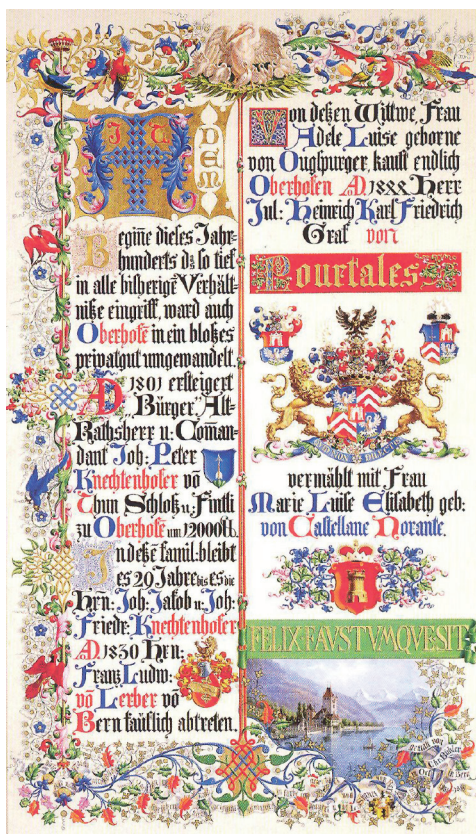 DEM
Begiñe dieses Jahr-
hunderts dz so tief
in alle bisherigẽ Verhält-
niße eingriff, ward auch
Oberhofẽ in ein bloßes
privatgut umgewandelt.
A 1801 ersteigert
„Bürger” Alt-
Rathsherr u: Com̃an-
dant Joh: Peter
Knechtenhofer võ
Thun Schloß u:
zu Oberhofẽ um 12000 ℔.
In deßẽ famil: bleibt
es 20 Jahre bis es die
Hrn: Joh: Jakob u: Joh:
Friedr: Knechtenhofer
A 1830 Hrn:
Franz Ludw:
võ Lerber võ
Bern käuflich abtreten.
Von deßen Wittwe, Frau
Adele Luise geborne
von Ougspurger, kauft endlich
Oberhofen A 1888 Herr
Jul: Heinrich Karl Friedrich
Graf von
Pourtales
vermählt mit Frau
Marie Luise Elisabeth geb:
von Castellane Norante.
FELIX FAVSTVMQVE SIT